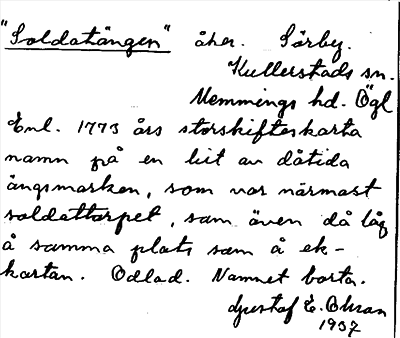 "Soldatängen" åker. Sörby.
Kullerstads sn.
Memmings hd. Ögl
Enl. 1773 års storskifteskarta
namn på en bit av dåtida
ängsmarken, som var närmast
soldattorpet, som även då låg
å samma plats som å ek-
kartan. Odlad. Namnet borta.
Gustaf E. Ohson
1937